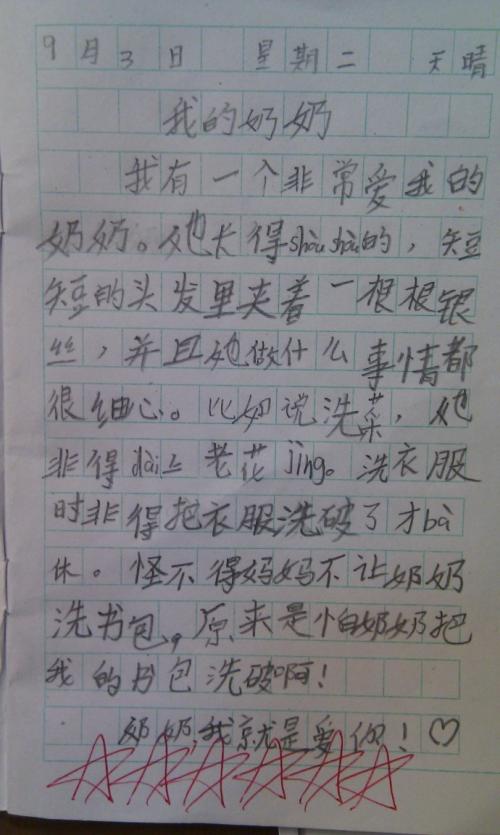 9月3日 星期二 天晴
我的奶奶
我有一个非常爱我的
奶奶。她长得shòu shòu的，短
短的头发里夹着一根根银
丝，并且她做什么事情都
很细心。比如说洗菜，她
非得dài上老花jìng。洗衣服
时非得把衣服洗破了才bà
休。怪不得妈妈不让奶奶
洗书包，原来是怕奶奶把
我的书包洗破啊！
奶奶，我就是爱你！♡